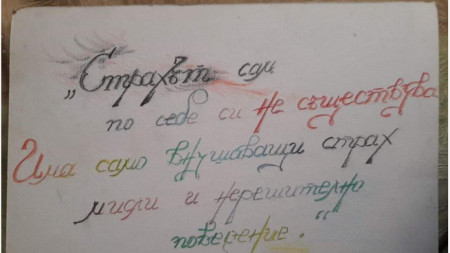 „Страхът сам
по себе си не съществува
Има само внушаващи страх
мисли и нерешително
поведение."